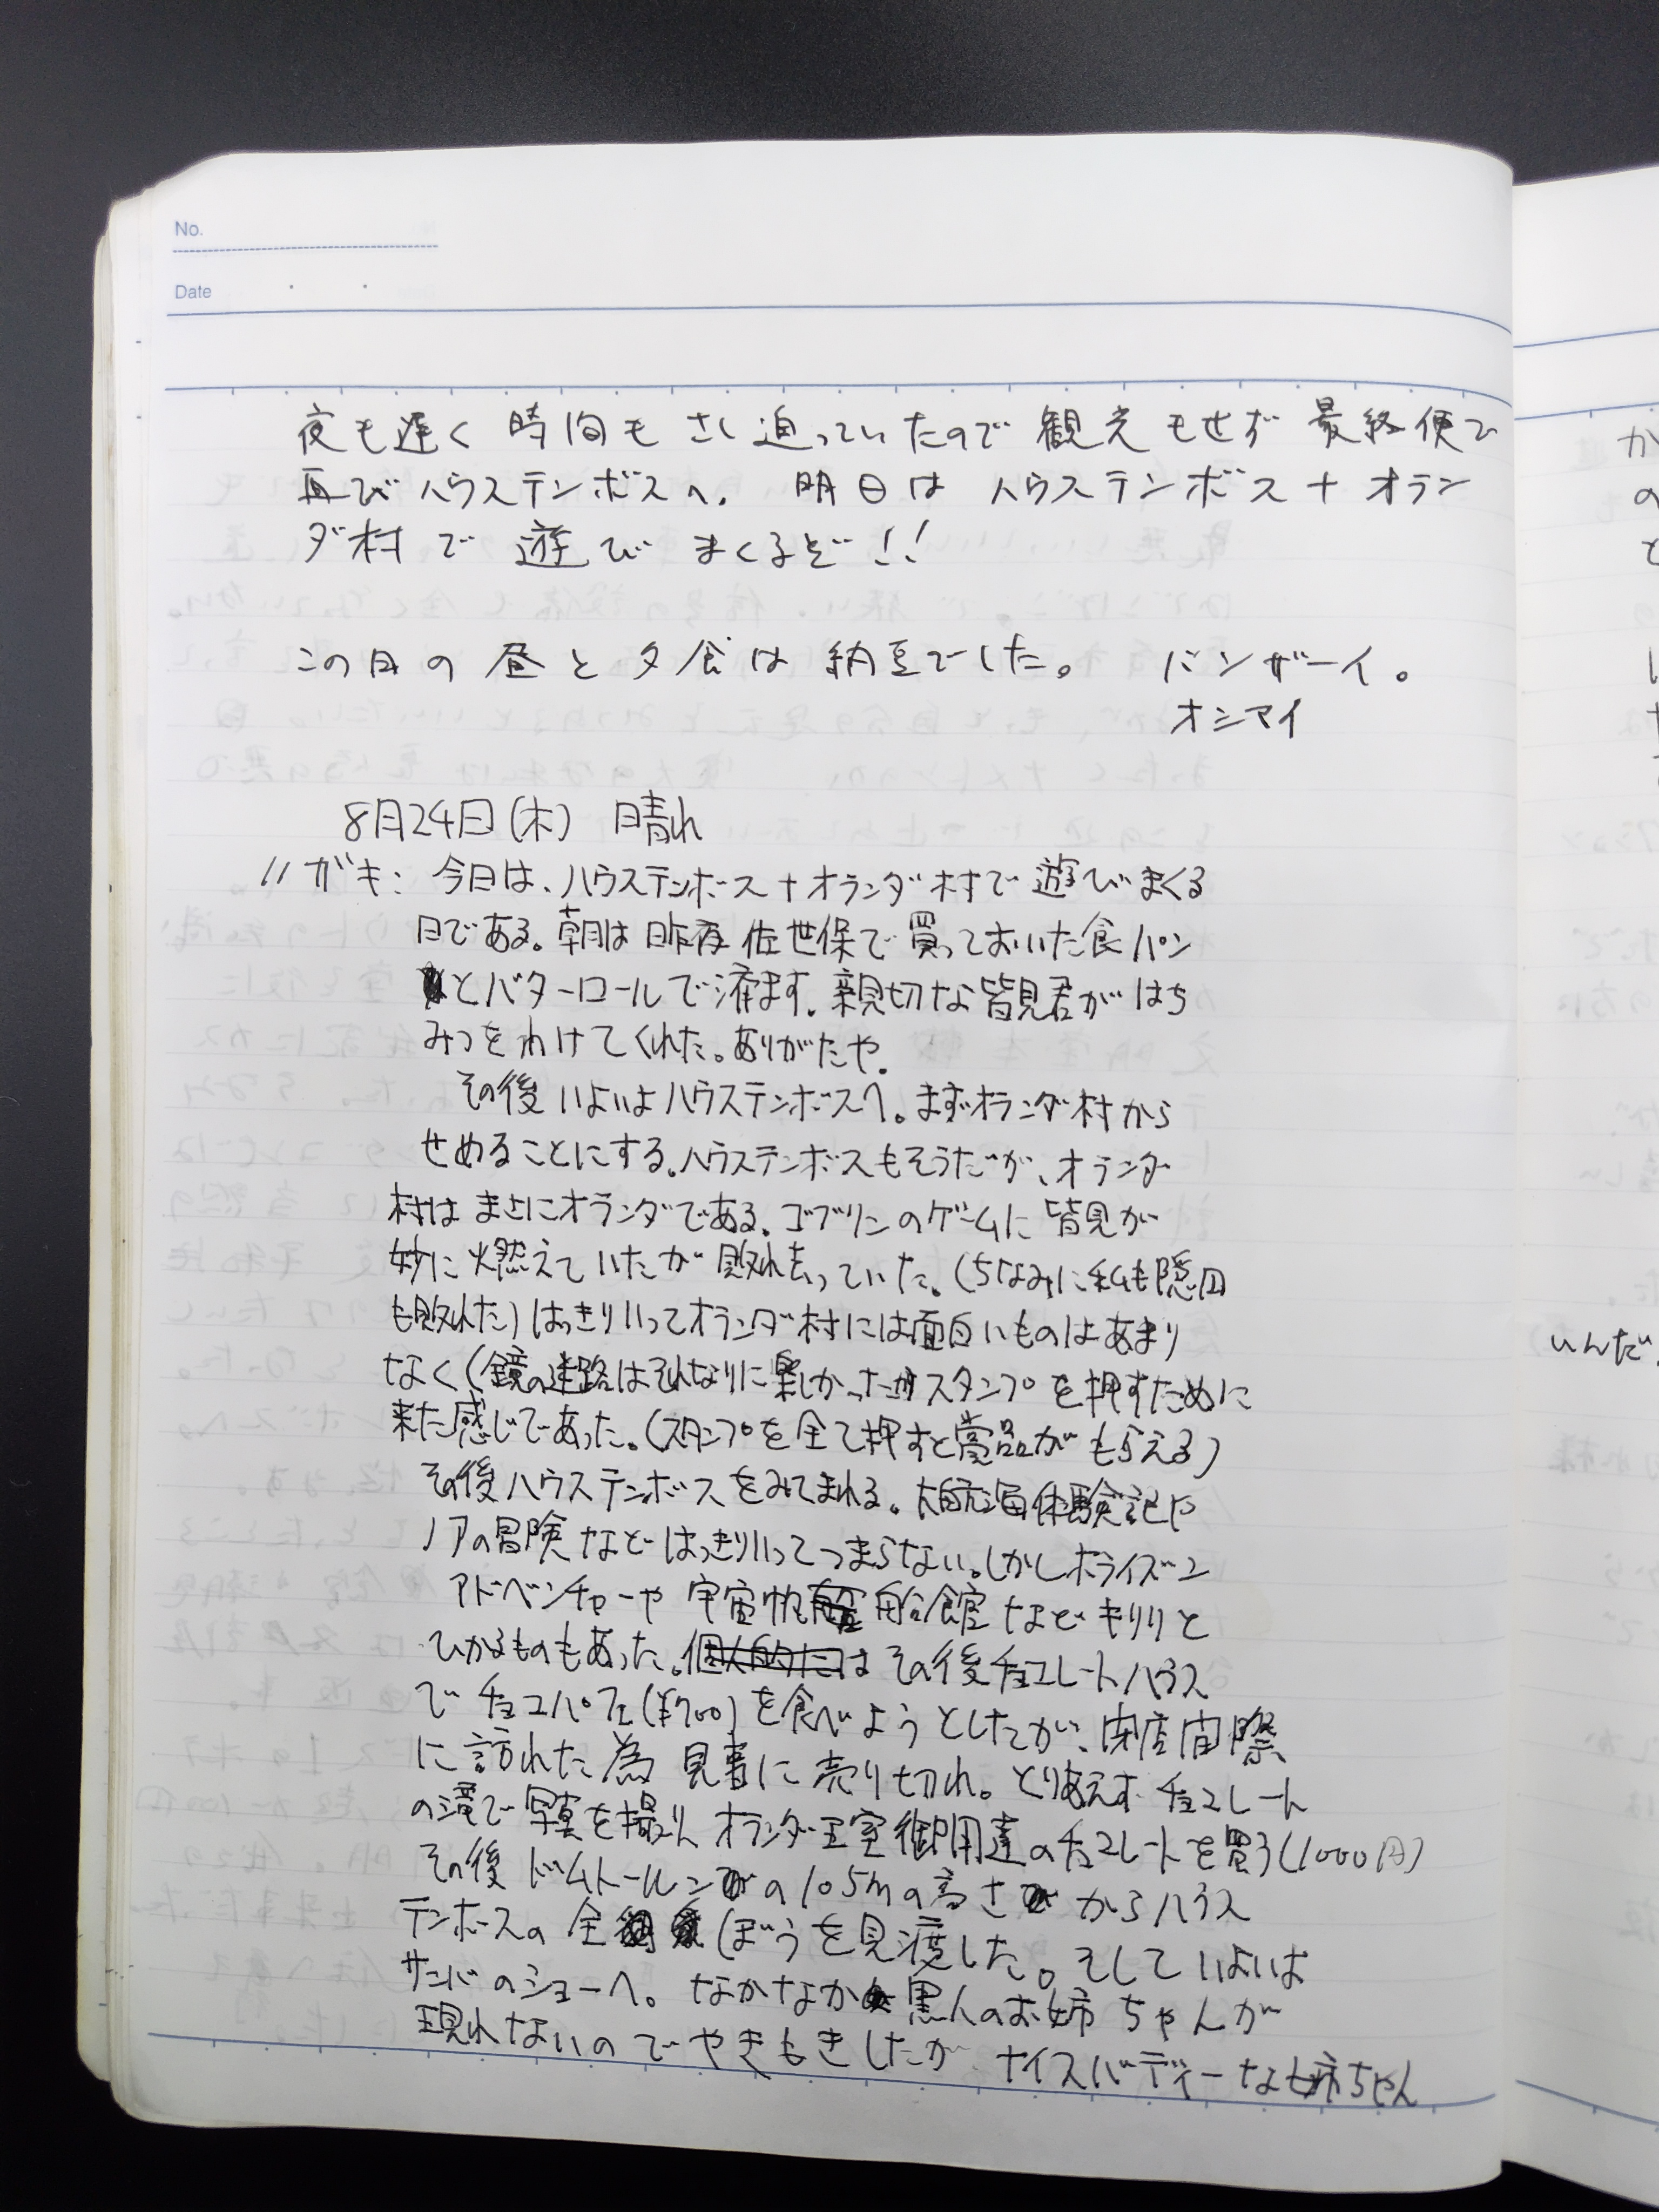 No.
Date
夜も遅く 時間も さし迫っていたので 観光 もせず 最終便で
再びハウステンボスへ. 明日は ハウステンボス + オラン
ダ村で 遊び まくるぞ!!
この日の 昼と夕食は 納豆でした。 バンザーイ。
オシマイ
8月24日(木) 晴れ
ガキ: 今日は、ハウステンボース+オランダ村で遊びまくる
日である。朝は昨夜佐世保で買っておいた食パン
とバターロールで済ます. 親切な皆見君がはち
みつをわけてくれた。ありがたや.
その後いよいよハウステンボースへ。まずオランダ村から
せめることにする。ハウステンボスもそうだが、オランダ
村はまさにオランダである. ゴブリンのゲームに皆見が
妙に燃えていたが敗れ去っていた。(ちなみに私も隠田
も敗れた)はっきりいってオランダ村には面白いものはあまり
なく(鏡の迷路はそれなりに楽しかったが スタンプを押すために
来た感じであった。(スタンプを全て押すと賞品がもらえる)
その後ハウステンボスをみてまわる。大航海体験記や
ノアの冒険などはっきりいってつまらない。しかしホライズン
アドベンチャーや宇宙帆船館などキリリと
ひかるものもあった。その後チョコレートハウス
でチョコパフェ(¥700)を食べようとしたが、閉店間際
に訪れた為 見事に売り切れ。とりあえずチョコレート
の滝で写真を撮り、オランダ王室御用達のチョコレートを買う(1000円)
その後ドムトールンの105mの高さからハウス
テンボースの全ぼうを見渡した。そしていよいよ
サンバのショーへ。なかなか黒人のお姉ちゃんが
現れないのでやきもきしたが ナイスバーディーな姉ちゃん
か
の
と
クション
いんだ.